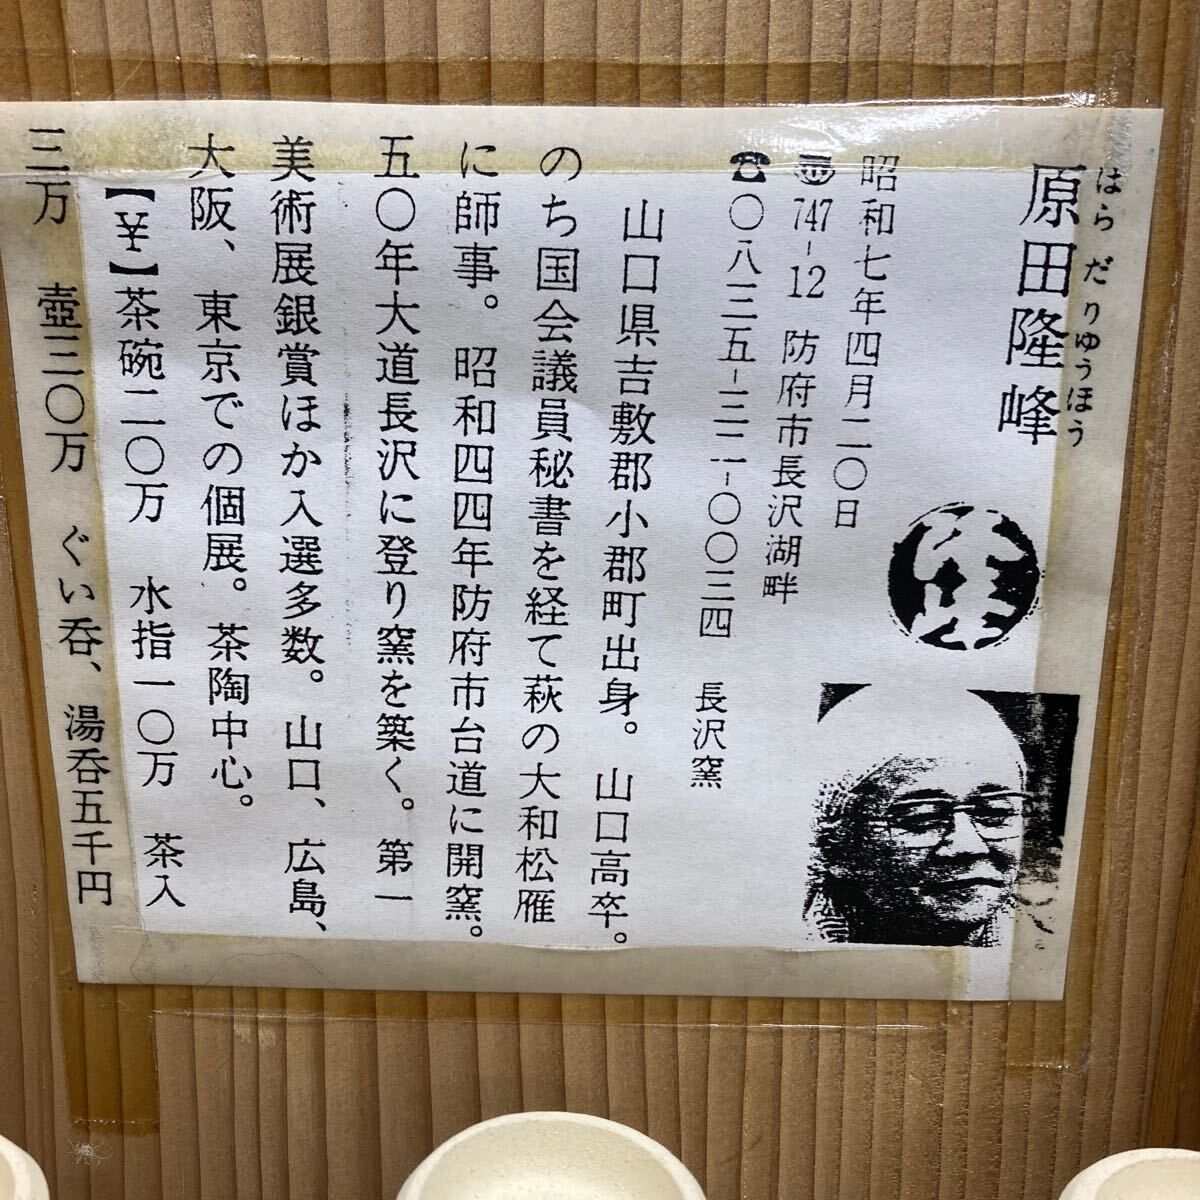 はら だ りゆうほう
原田隆峰
昭和七年四月二〇日
〠747-12 防府市長沢湖畔
☎〇八三五-三二-〇〇三四 長沢窯
山口県吉敷郡小郡町出身。山口高卒。
のち国会議員秘書を経て萩の大和松雁
に師事。昭和四四年防府市台道に開窯。
五〇年大道長沢に登り窯を築く。第一
美術展銀賞ほか入選多数。山口、広島、
大阪、東京での個展。茶陶中心。
【¥】茶碗二〇万 水指一〇万 茶入
三万 壺三〇万 ぐい呑、湯呑五千円